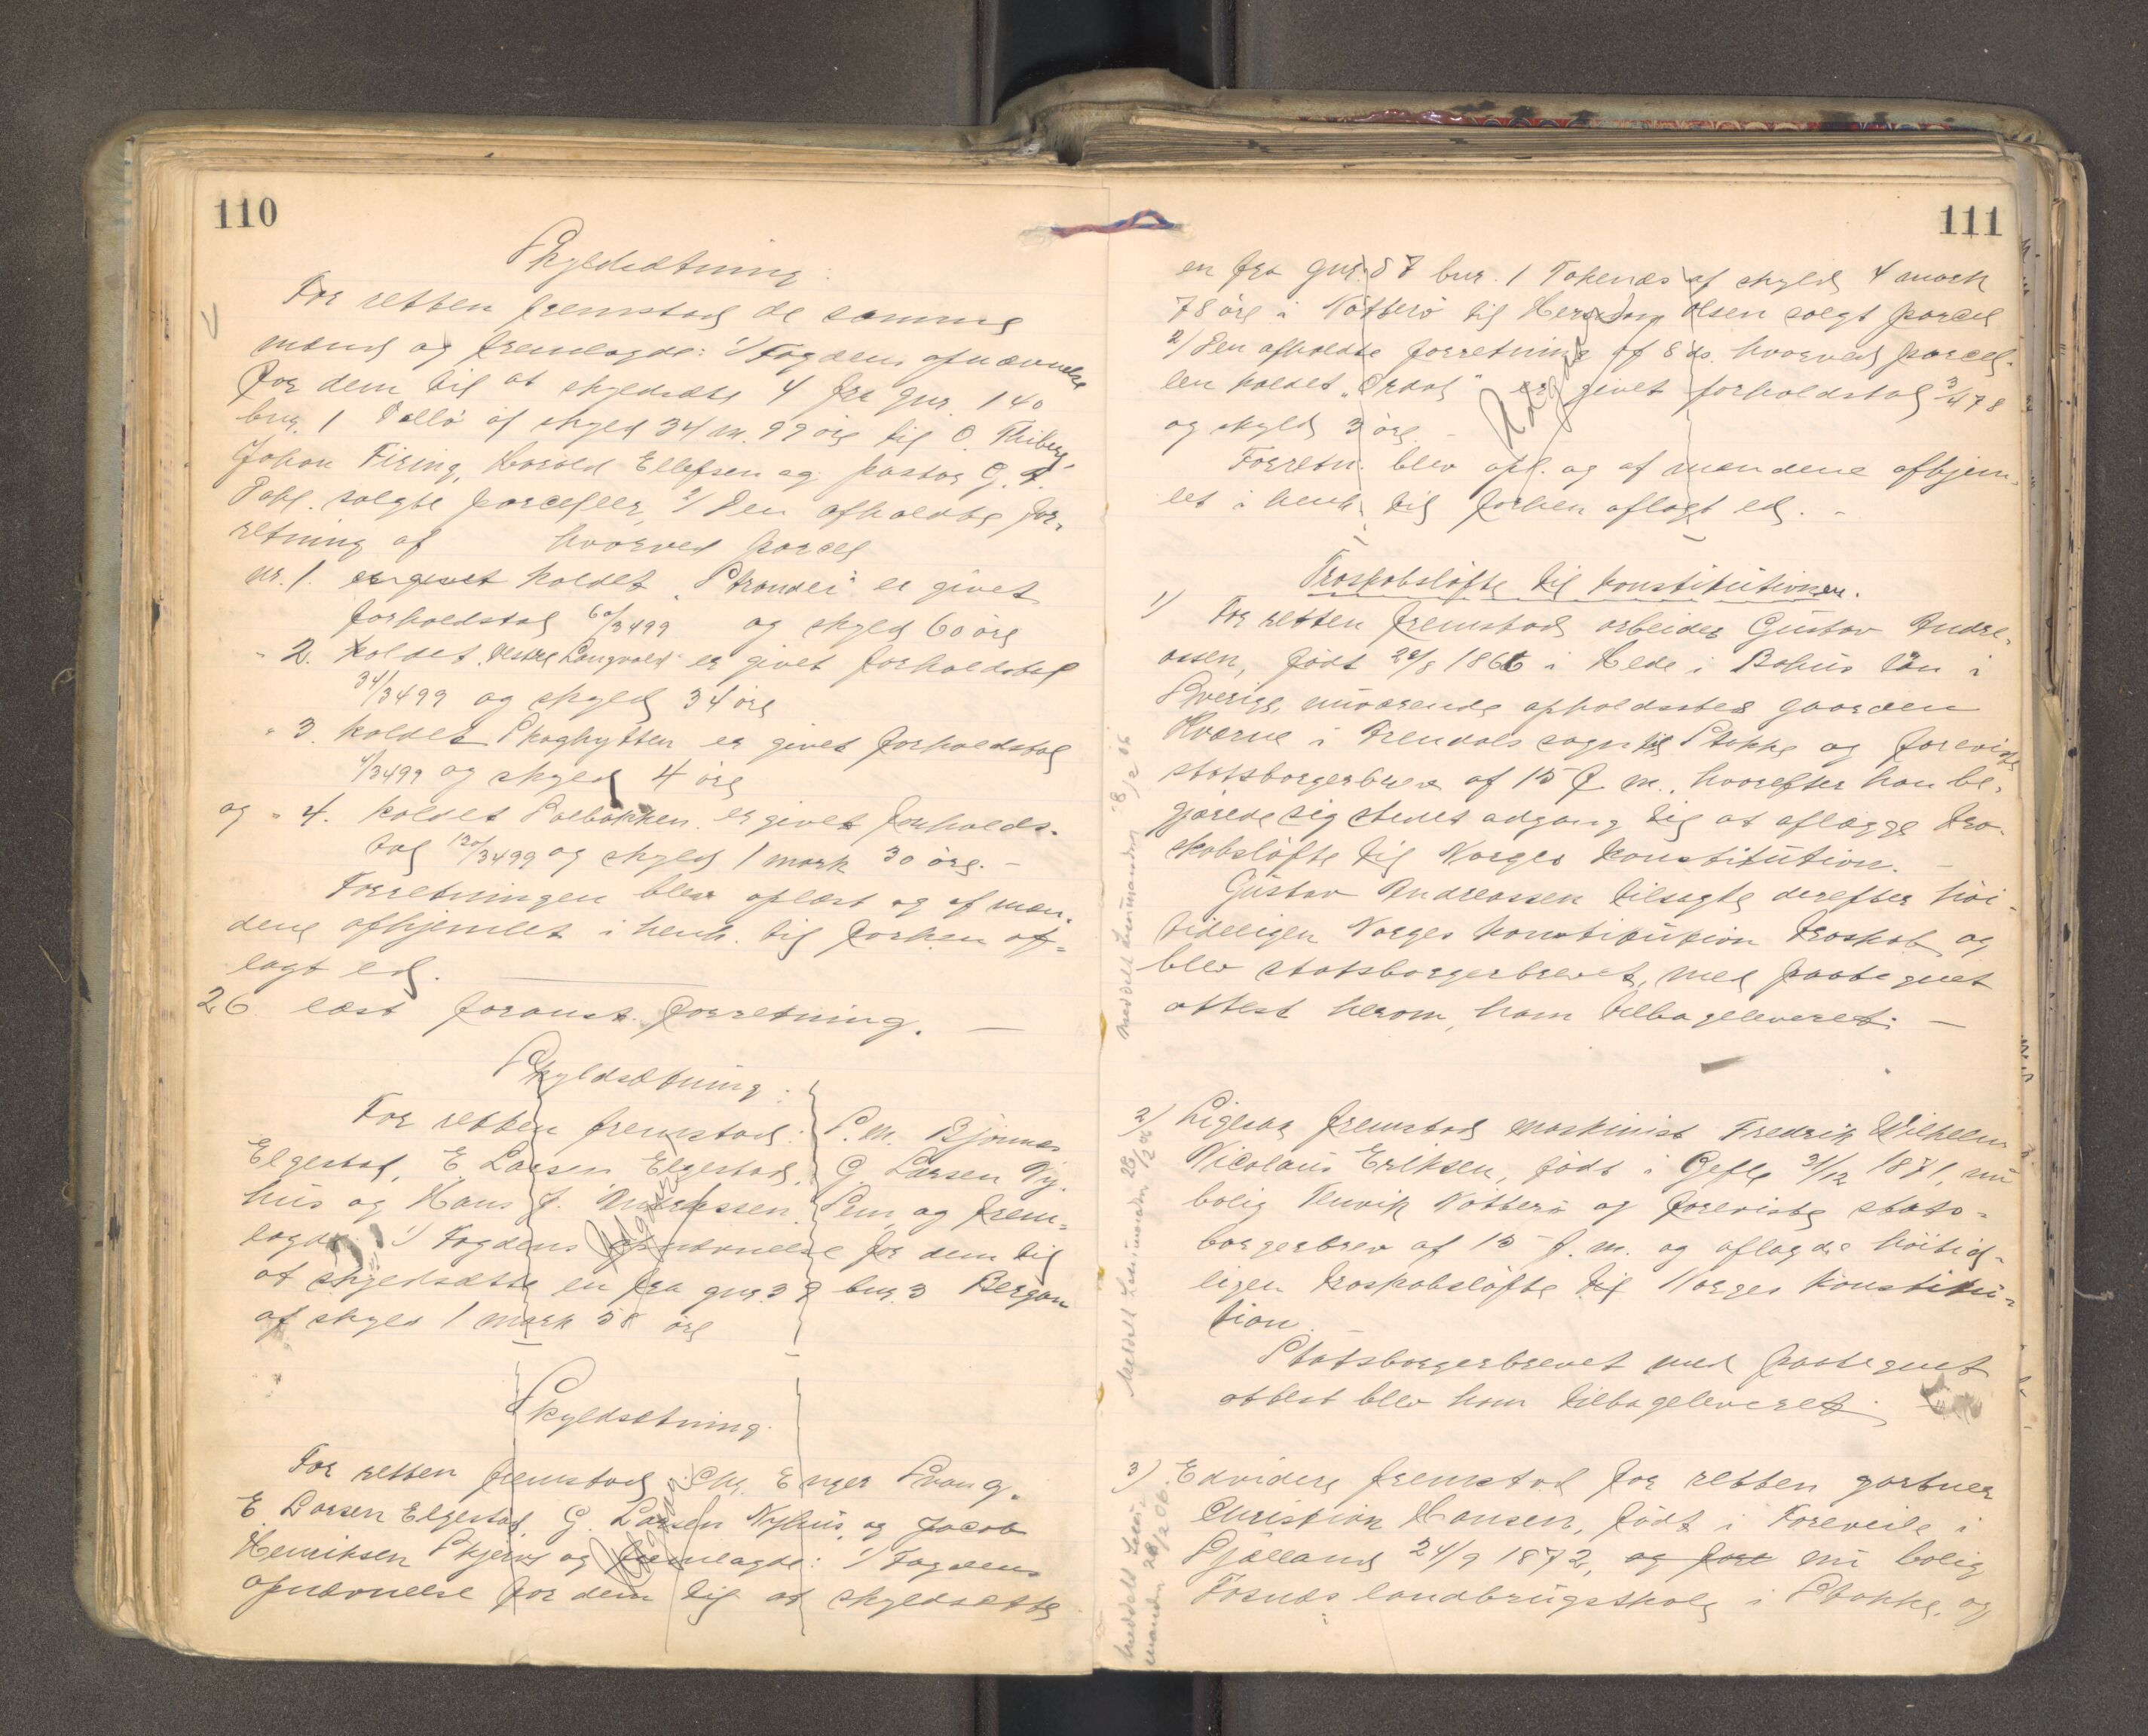 110
Skyldsætning:
For retten fremstod de samme
mænd og fremlagde: 1/ Fogdens opnævnelse
for dem til at skyldsætte 4 fra gnr. 140
bnr. 1 Sollø af skyld 34 m. 99 øre til O. Thiberg,
Johan Firing, Harald Ellefsen og pastor G. A.
Dahl. solgte parceller, 2/ Den afholdte for-
retning af hvorved parcel
nr. 1. er givet kaldet "Strandei" er givet
forholdstal 60/3499 og skyld 60 øre
" 2. kaldet "Vestre Langvold" er givet forholdstal
34/3499 og skyld 34 øre
" 3. kaldet Skoghytten er givet forholdstal
4/3499 og skyld 4 øre
og " 4. kaldet Solbakken er givet forholds-
tal 130/3499 og skyld 1 mark 30 øre. –
Forretningen blev oplæst og af mæn-
dene afhjemlet i henh. til forhen af-
lagt ed.
26 læst foranst. forretning. –
Skyldsætning:
For retten fremstod: S. M. Bjønnes
Elgestad, E Larsen Elgestad, G. Larsen Ny-
hus og Hans J. Andreassen Sem og frem-
lagde 1/ Fogdens opnævnelse for dem til
at skyldsætte en fra gnr. 39 bnr. 3 Bergan
af skyld 1 mark 58 øre
Udgaar
Skyldsætning.
For retten fremstod Chr. Enger Svang.
E. Larsen Elgestad, G. Larsen Nyhus, og Jacob
Henriksen Skjerve og fremlagde: 1/ Fogdens
opnævnelse for dem til at skyldsætte
Udgaar
111
en fra gnr. 87 bnr. 1 Tokenæs af skyld 4 mark
78 øre i Nøtterø til Herman Olsen solgt parcel
2/ Den afholdte forretning af 8 ds. hvorved parcel-
len kaldet "Ardal" er givet forholdstal 3/478
og skyld 3 øre. –
Udgaar
Forretn. blev opl. og af mændene afhjem-
let i henh. til forhen aflagt ed. –
Troskabsløfte til konstitutionen.
1) For retten fremstod arbeider Gustav Andre-
assen, født 28/8 1866 i Hede i Bohus län i
Sverige, nuværende opholdssted gaarden
Hvarne i Arendals sogn til Stokke og foreviste
statsborgerbrev af 15 f. m., hvorefter han be-
gjærede sig stedet adgang til at aflægge tro-
skabsløfte til Norges konstitution. –
Gustav Andreassen tilsagte derefter høi-
tideligen Norges konstitution troskab og
blev statsborgerbrevet, med paategnet
attest herom, ham tilbageleveret. –
meddelt Lensmanden 8/2 06
2) Ligesaa fremstod maskinist Fredrik Wilhelm
Nicolaus Eriksen, født i Gefle 31/12 1871, nu
bolig Tenvik Nøtterø og foreviste stats-
borgerbrev af 15 f. m. og aflagde høitid-
ligen troskabsløfte til Norges konstitu-
tion.
Statsborgerbrevet med paategnet
attest blev ham tilbageleveret.
Meddelt Lensmanden 28/2 06
3) Endvidere fremstod for retten gartner
Christian Hansen, født i Foreveile i
Sjælland 24/9 1872, og fore nu bolig
Fosnæs landbrugsskole i Stokke, og
meddelt Lens-
manden 28/2 06.